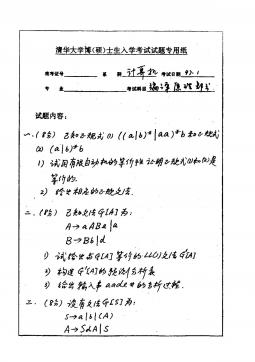 清华大学博(硕)士生入学考试试题专用纸
准考证号 系别 计算机 考试日期 97.1
专业 考试科目 编译原理部分
试题内容:
一.(8分) 已知正规式(1) ((a|b)*|aa)*b 和正规式
(2) (a|b)*b
1) 试用有限自动机的等价性证明正规式(1)和(2)是
等价的.
2) 给出相应的正规文法.
二.(8分) 已知文法G[A]为:
A→aABa|a
B→Bb|d
1) 试给出与G[A]等价的LL(1)文法G'[A]
2) 构造G'[A]的预测分析表
3) 给出输入串aade#的分析过程.
三.(8分) 设有文法G[S]为:
S→a|b|(A)
A→SdA|S